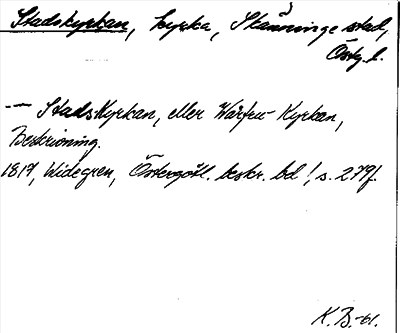 Stadskyrkan, kyrka, Skänninge stad,
Östg. l.
— Stadskyrkan, eller Wårfru-Kyrkan,
Beskrivning.
1817, Widegren, Östergötl. beskr. bd 1, s. 279f.
K.B.-61.